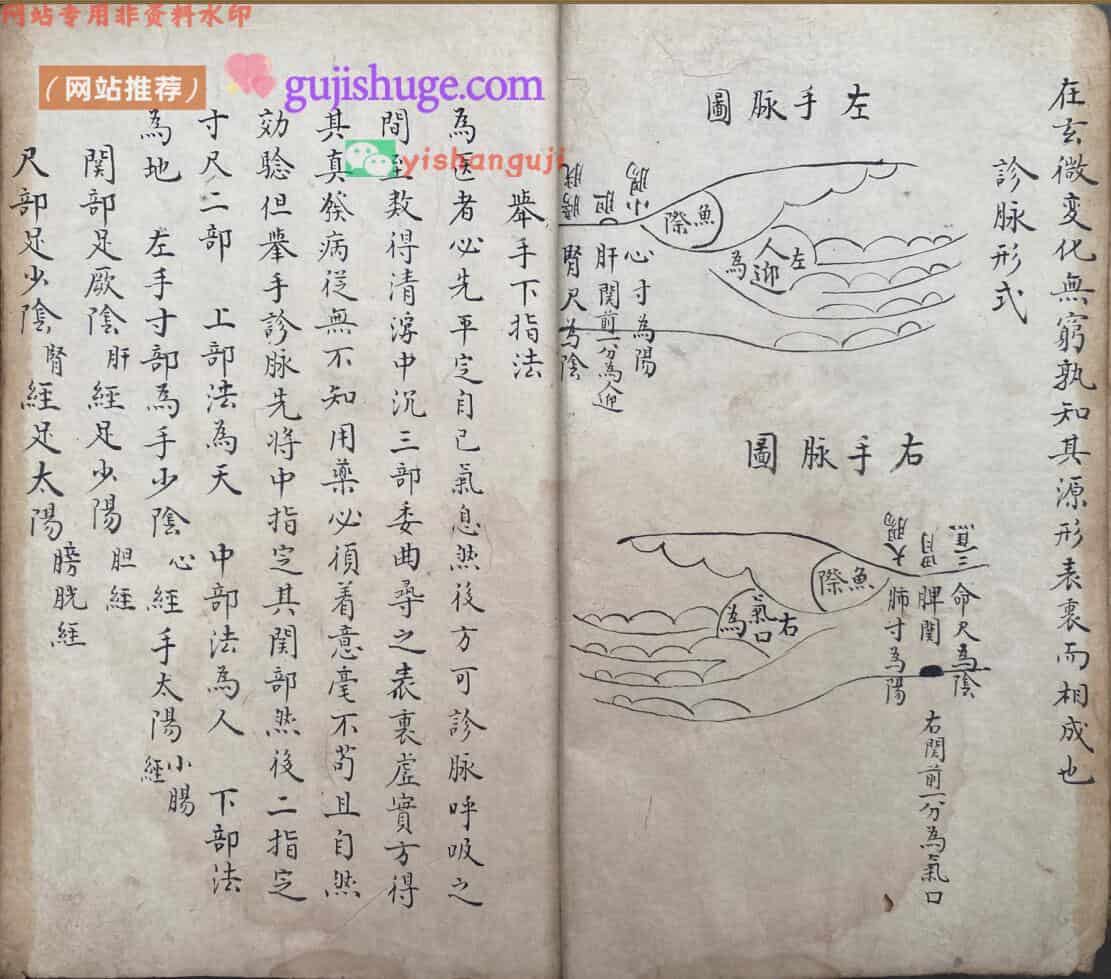 网站专用非资料水印
（网站推荐）
gujishuge.com
yishanguji
在玄微変化無窮孰知其源形表裏而相成也
診脉形式
左手脉圖
魚際
左為人迎
小腸
胆
膀胱
心寸為陽
肝関前一分為人迎
腎尺為陰
右手脉圖
魚際
右為氣口
三焦
胃
大腸
命尺為陰
脾関
肺寸為陽
右関前一分為氣口
舉手下指法
為医者必先平定自己氣息然後方可診脉呼吸之
間至数得清浮中沉三部委曲尋之表裏虛實方得
其真発病従無不知用藥必須着意毫不苟且自然
効驗但舉手診脉先将中指定其関部然後二指定
寸尺二部 上部法為天 中部法為人 下部法
為地 左手寸部為手少陰心經手太陽小腸經
関部足厥陰肝經足少陽胆經
尺部足少陰腎經足太陽膀胱經